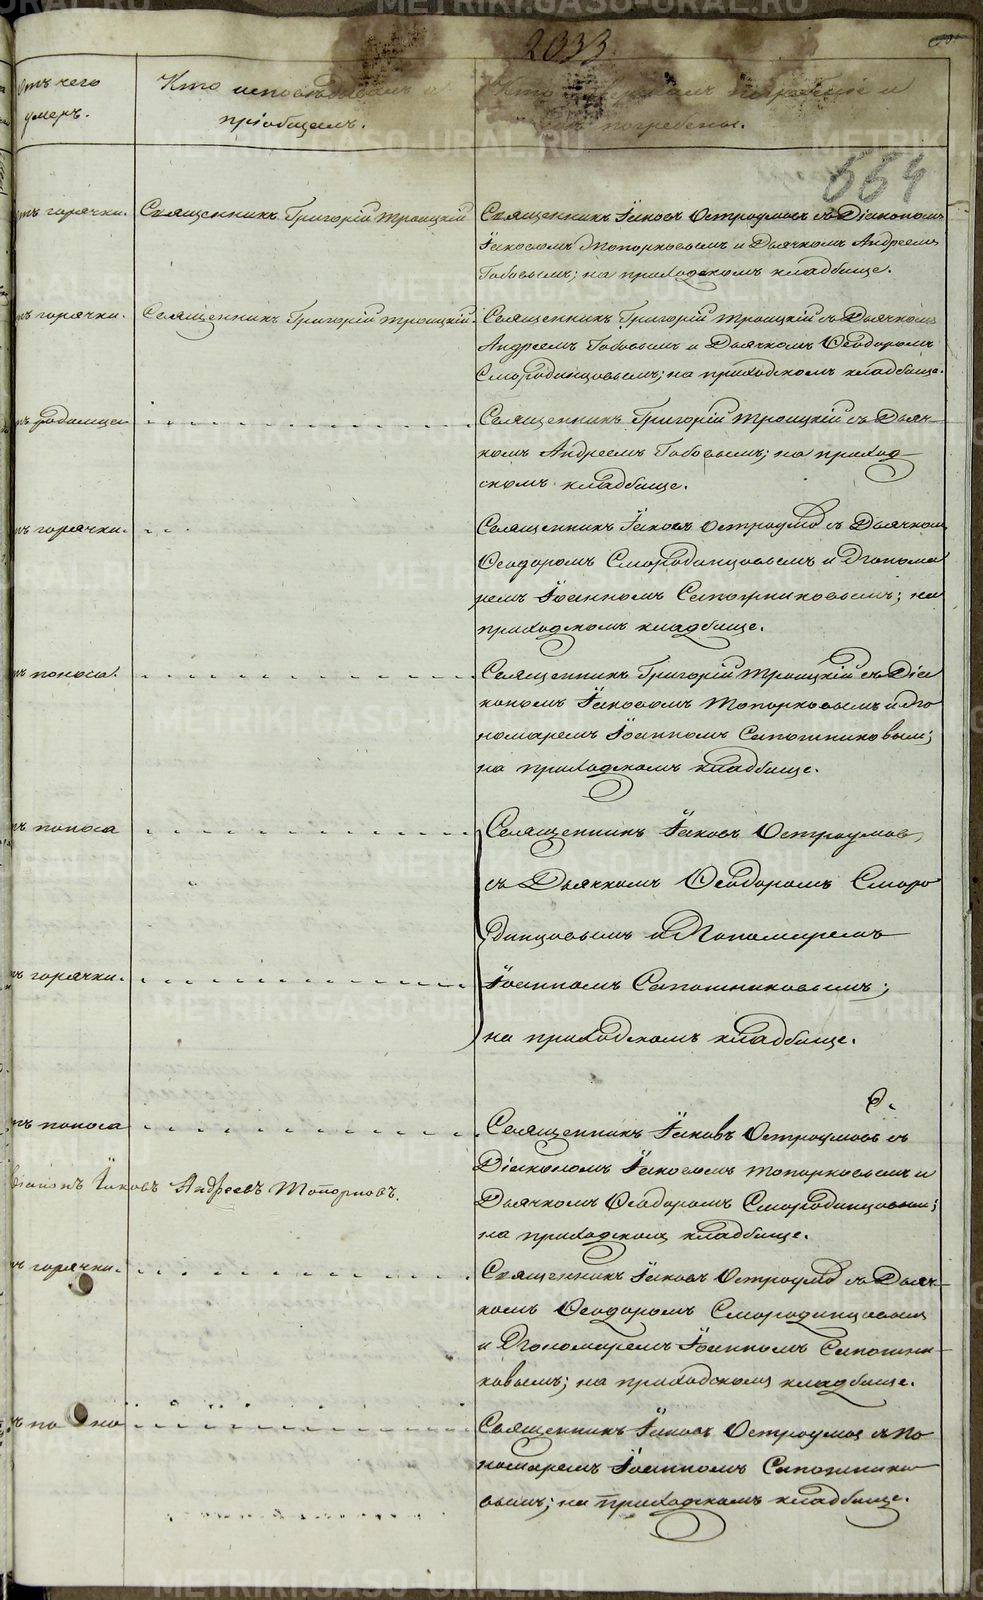 2033
664
Отъ чего
умеръ.
Кто исповѣдывалъ и
пріобщалъ.
Кто совершалъ погребеніе и
гдѣ погребены.
отъ горячки. Священникъ Григорій Троицкій
Священникъ Іаковъ Остроумовъ съ Діакономъ
Іаковомъ Топорковымъ и Дьячкомъ Андреемъ
Бабовымъ; на приходскомъ кладбище.
отъ горячки. Священникъ Григорій Троицкій.
Священникъ Григорій Троицкій съ Дьячкомъ
Андреемъ Бабовымъ и Дьячкомъ Ѳеодоромъ
Смородинцовымъ; на приходскомъ кладбище.
Священникъ Григорій Троицкій съ Дьяч-
комъ Андреемъ Бабовымъ; на приход-
скомъ кладбище.
отъ горячки.
Священникъ Іаковъ Остроумов съ Дьячком
Ѳеодоромъ Смородинцовымъ и Понома
ремъ Іоанномъ Сапожниковымъ; на
приходскомъ кладбище.
отъ поноса.
Священникъ Григорій Троицкій съ Діа
кономъ Іаковомъ Топорковымъ и По
номаремъ Іоанномъ Сапожниковым;
на приходскомъ кладбище.
отъ поноса
Священникъ Іаковъ Остроумов,
съ Дьячкомъ Ѳеодоромъ Сморо
динцовымъ и Пономаремъ
отъ горячки.
Іоанномъ Сапожниковымъ;
на приходскомъ кладбище.
отъ поноса
Священникъ Іаковъ Остроумовъ съ
Діакономъ Іаковомъ Топорковымъ и
Діаконъ Іаковъ Андреевъ Топорковъ.
Дьячкомъ Ѳеодоромъ Смородинцовым;
на приходском кладбище.
отъ горячки.
Священникъ Іаковъ Остроумов съ Дьяч-
комъ Ѳеодоромъ Смородинцовым
и Пономаремъ Іоанномъ Сапожни-
ковымъ; на приходском кладбище.
Священникъ Іаковъ Остроумов съ По
номаремъ Іоанномъ Сапожнико
вымъ; на приходскомъ кладбище.
METRIKI.GASO-URAL.RU